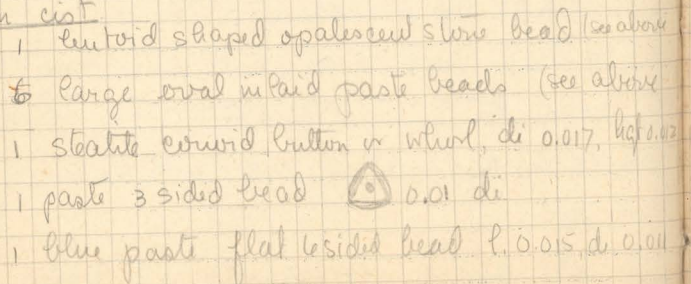 n cist
1 lentoid shaped opalescent stone bead (see above
6 large oval inlaid paste beads (see above
1 steatite conoid button or whorl, di 0.017, hgt 0.012
1 paste 3 sided bead 0.01 di
1 blue paste flat 6 sided bead l. 0.015, d. 0.011